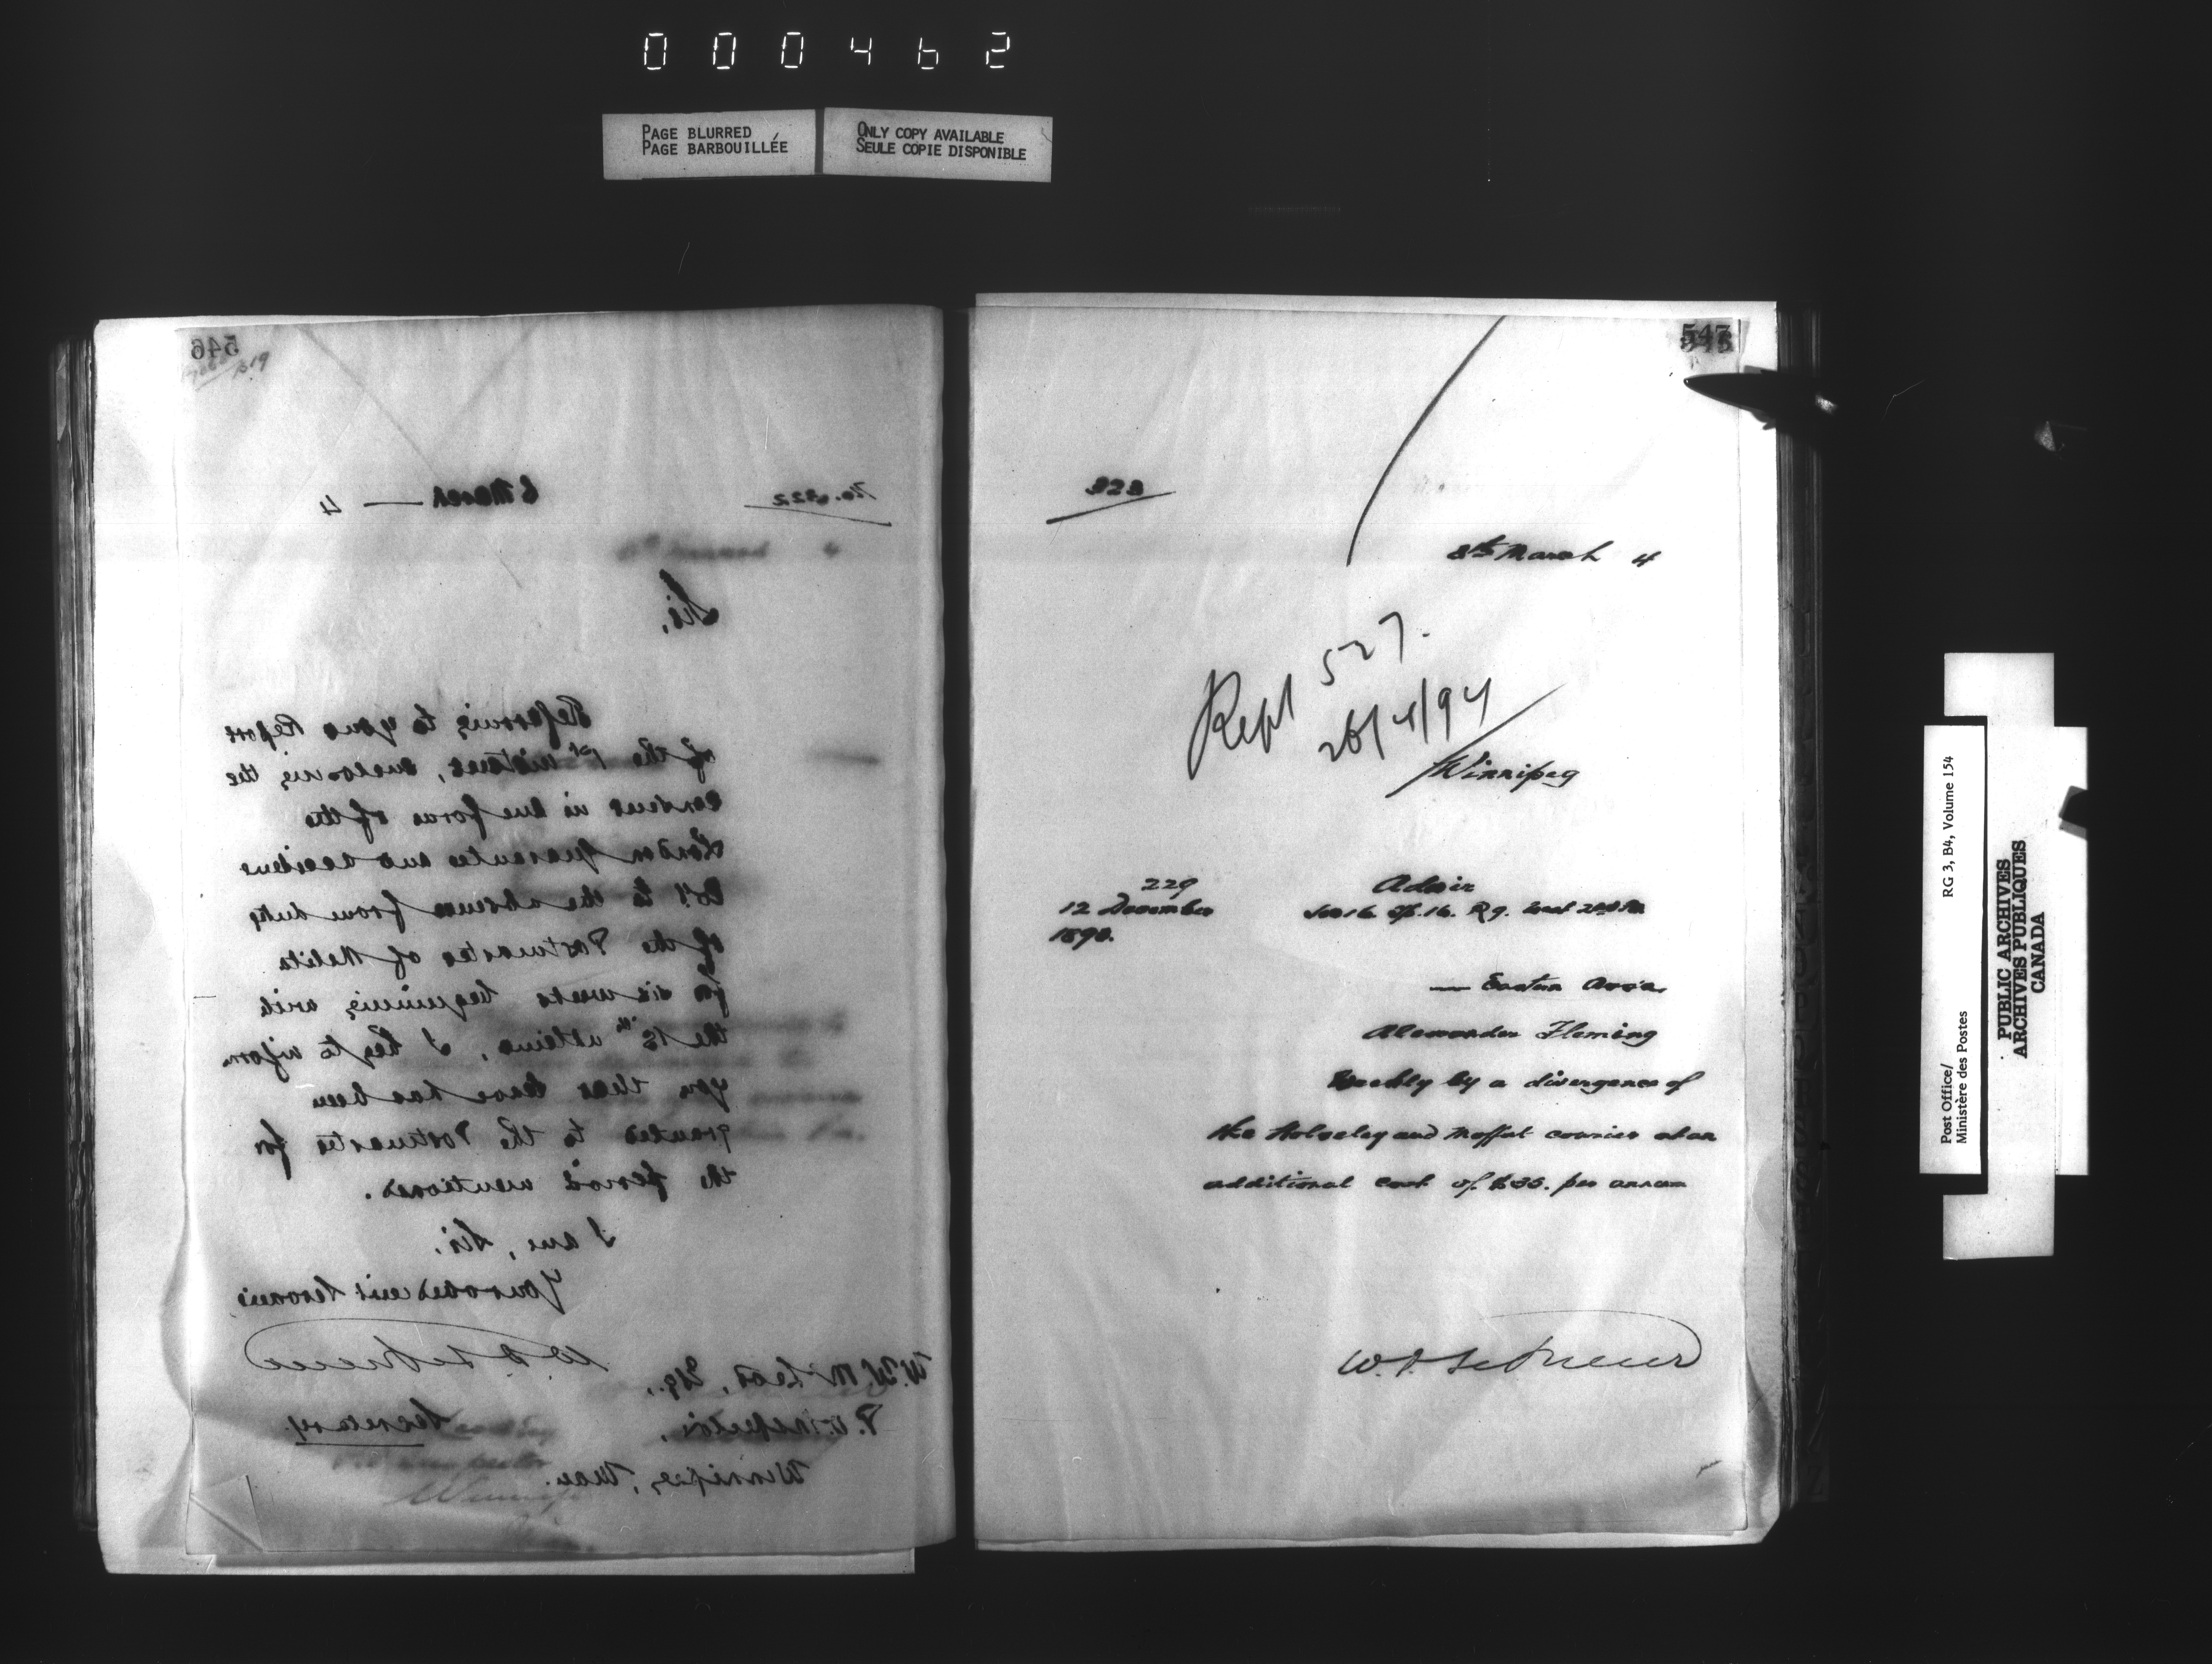 000462
PAGE BLURRED
PAGE BARBOUILLÉE
ONLY COPY AVAILABLE
SEULE COPIE DISPONIBLE
546
No. 322
6 March — 4
Sir,
Referring to your Report
of the 1st instant, enclosing the
consent in due form of the
London Guarantee and Accident
Coy to the absence from duty
of the Postmaster of Melita
for six weeks beginning with
the 15th ultimo, I beg to inform
you that leave has been
granted to the Postmaster for
the period mentioned.
I am, Sir,
Your obedient Servant
Secretary.
W. W. McLeod, Esq.,
P.O. Inspector,
Winnipeg, Man.
547
323
8th March 4
Rept 527.
26/4/94
Winnipeg
229
12 December
1893.
Adair
Sec 16. Tp. 16. R 9. West 2nd
— Eastern Assa.
Alexander Fleming
Weekly by a divergence of
the Wolseley and Moffat courier at an
additional cost of $35. per annum
Post Office/
Ministère des Postes
RG 3, B4, Volume 154
PUBLIC ARCHIVES
ARCHIVES PUBLIQUES
CANADA